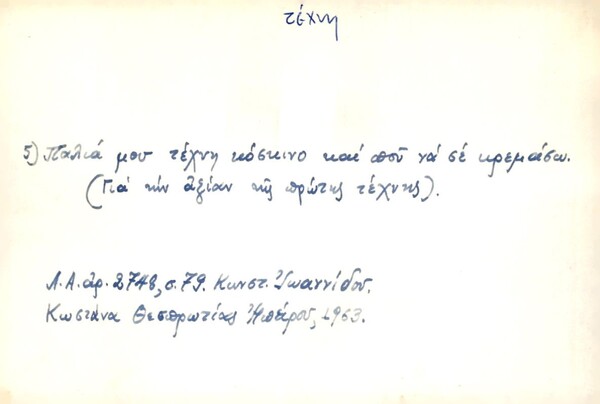 τέχνη
5) Παλιά μου τέχνη κόσκινο καί ποῦ νά σέ κρεμάσω.
(Γιά τήν ἀξίαν τῆς πρώτης τέχνης).
Λ.Α. ἀρ. 2748, σ. 79. Κωνστ. Ἰωαννίδου.
Κωστάνα Θεσπρωτίας Ἠπείρου, 1963.